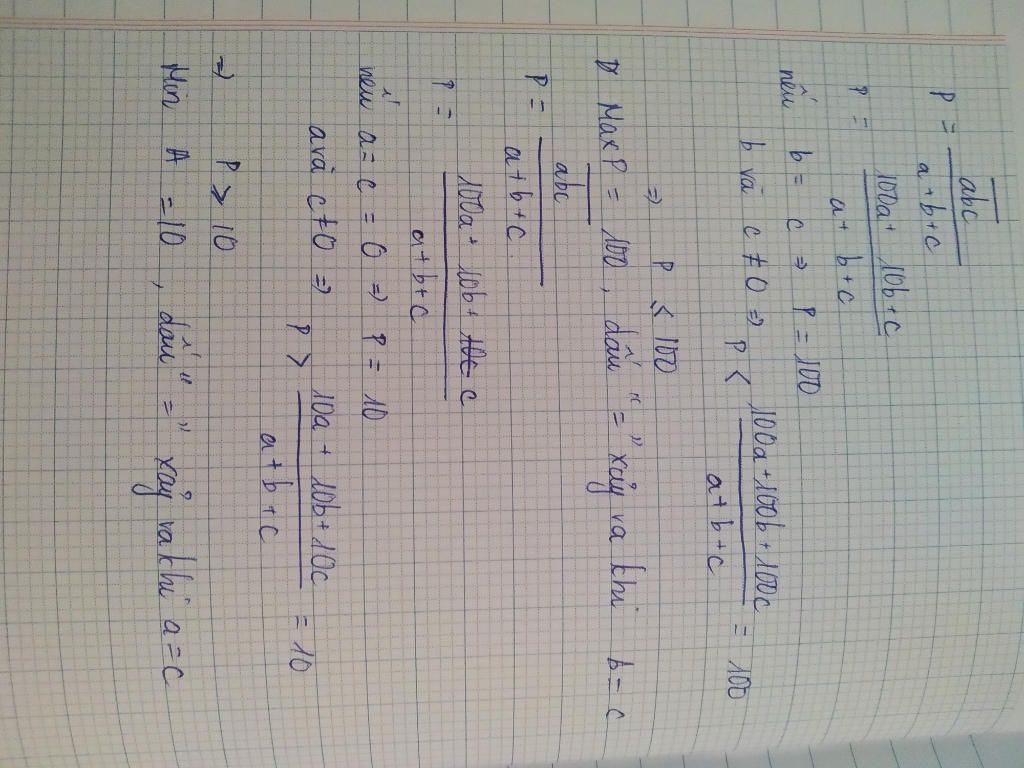 P = abc
a+b+c
P = 100a + 10b+c
a+ b+c
nếu b= c ⇒ P = 100
b và c ≠ 0 ⇒ P < 100a+100b+100c = 100
a+b+c
⇒ P ≤ 100
Max P = 100, dấu "=" xảy ra khi b=c
P = abc
a+b+c
P = 100a+ 10b+ 10c c
a+b+c
nếu a=c = 0 ⇒ P = 10
a và c ≠ 0 ⇒ P > 10a+ 10b+10c = 10
a+b+c
⇒ P ≥ 10
Min A =10, dấu "=" xảy ra khi a=c